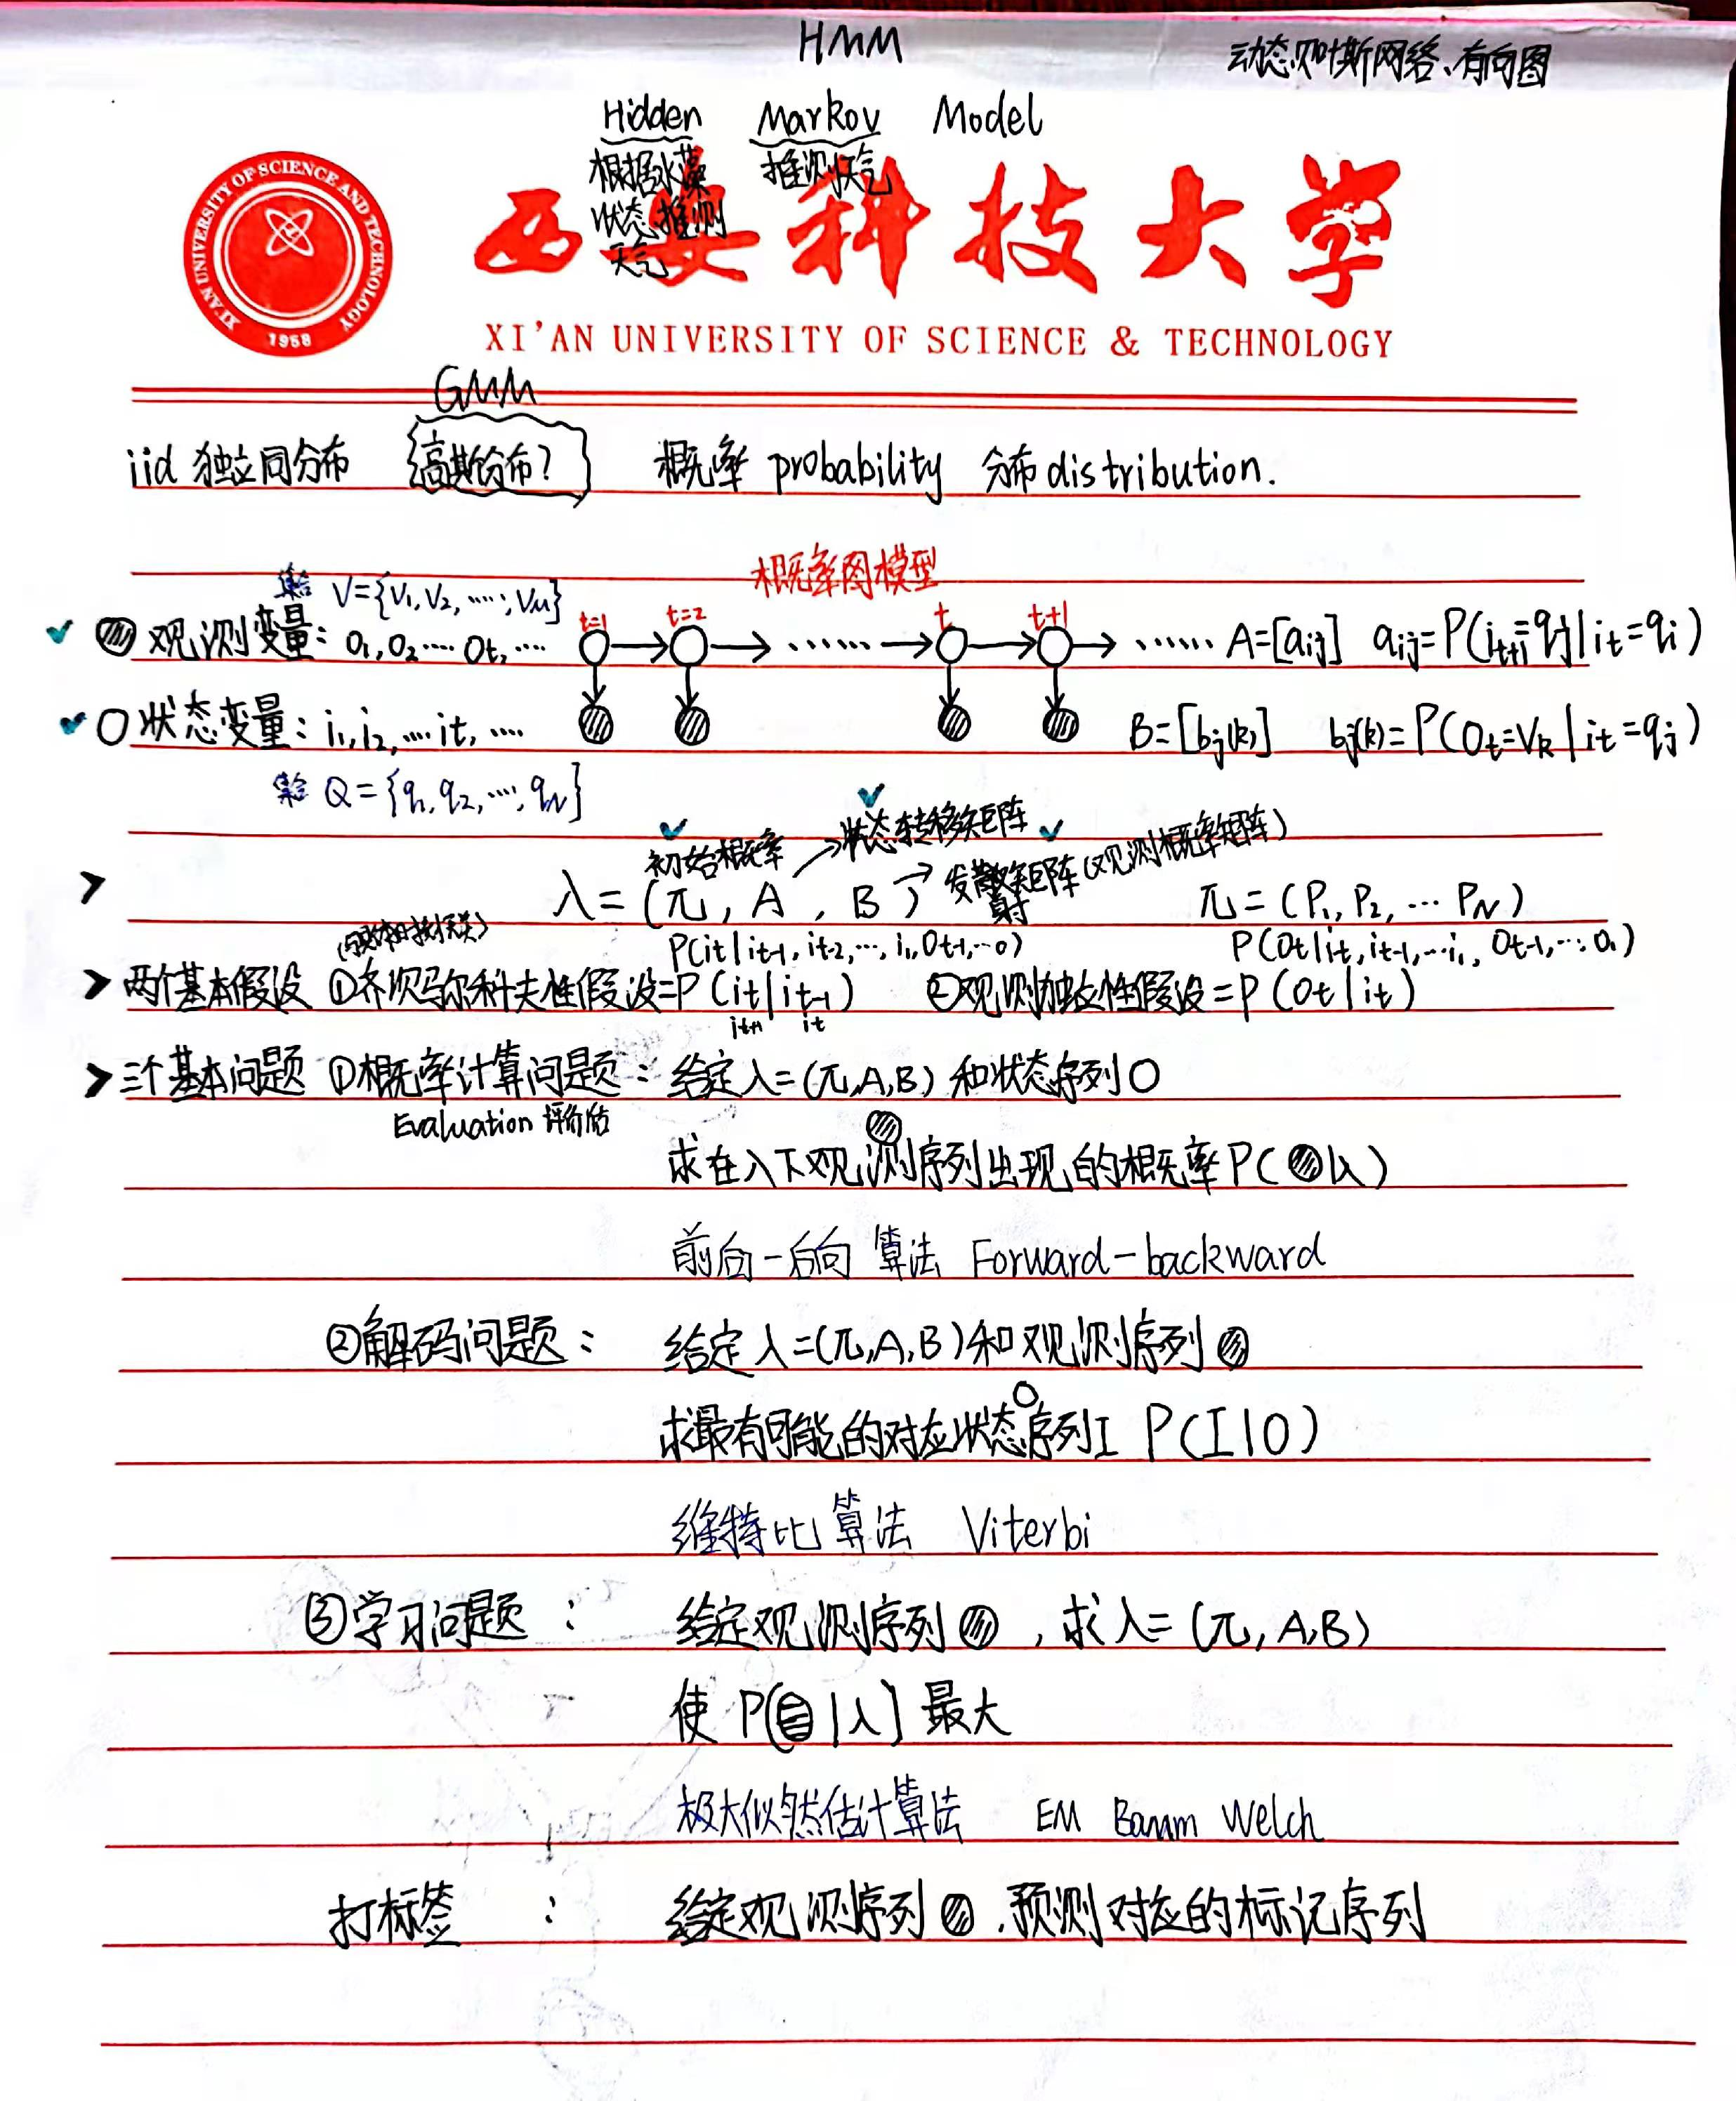 HMM
动态贝叶斯网络、有向图
Hidden Markov Model
根据水藻 推测天气
状态推测
天气
XI'AN UNIVERSITY OF SCIENCE AND TECHNOLOGY
1958
西安科技大学
XI'AN UNIVERSITY OF SCIENCE & TECHNOLOGY
GMM
iid 独立同分布 高斯分布? 概率 probability 分布 distribution.
概率图模型
集合 V={V₁,V₂,……,V_M}
t=1 t=2 t t+1
观测变量: O₁,O₂…… Ot,…… …… …… A=[aij] aij=P(i_{t+1}=qj|it=qi)
状态变量: i₁,i₂,……it,…… B=[bj(k)] bj(k)=P(Ot=Vk|it=qj)
集合 Q={q₁,q₂,…,q_N}
初始概率 →状态转移矩阵
λ=(π, A, B) → 发散矩阵(观测概率矩阵) π=(P₁,P₂,…P_N)
射
P(it|it-1,it-2,…,i₁,Ot-1,…O) P(Ot|it,it-1,…i₁, Ot-1,…,O₁)
两个基本假设 ①齐次马尔科夫性假设=P(it|it-1) ②观测独立性假设=P(Ot|it)
it+1 it
三个基本问题 ①概率计算问题: 给定λ=(π,A,B)和状态序列○
Evaluation 评价估
求在λ下观测序列出现的概率P( |λ)
前向-后向 算法 Forward-backward
②解码问题: 给定λ=(π,A,B)和观测序列
求最有可能的对应状态序列I P(I|O)
维特比算法 Viterbi
③学习问题: 给定观测序列 ,求λ=(π,A,B)
使 P( |λ) 最大
极大似然估计算法 EM Baum Welch
打标签: 给定观测序列 .预测对应的标记序列